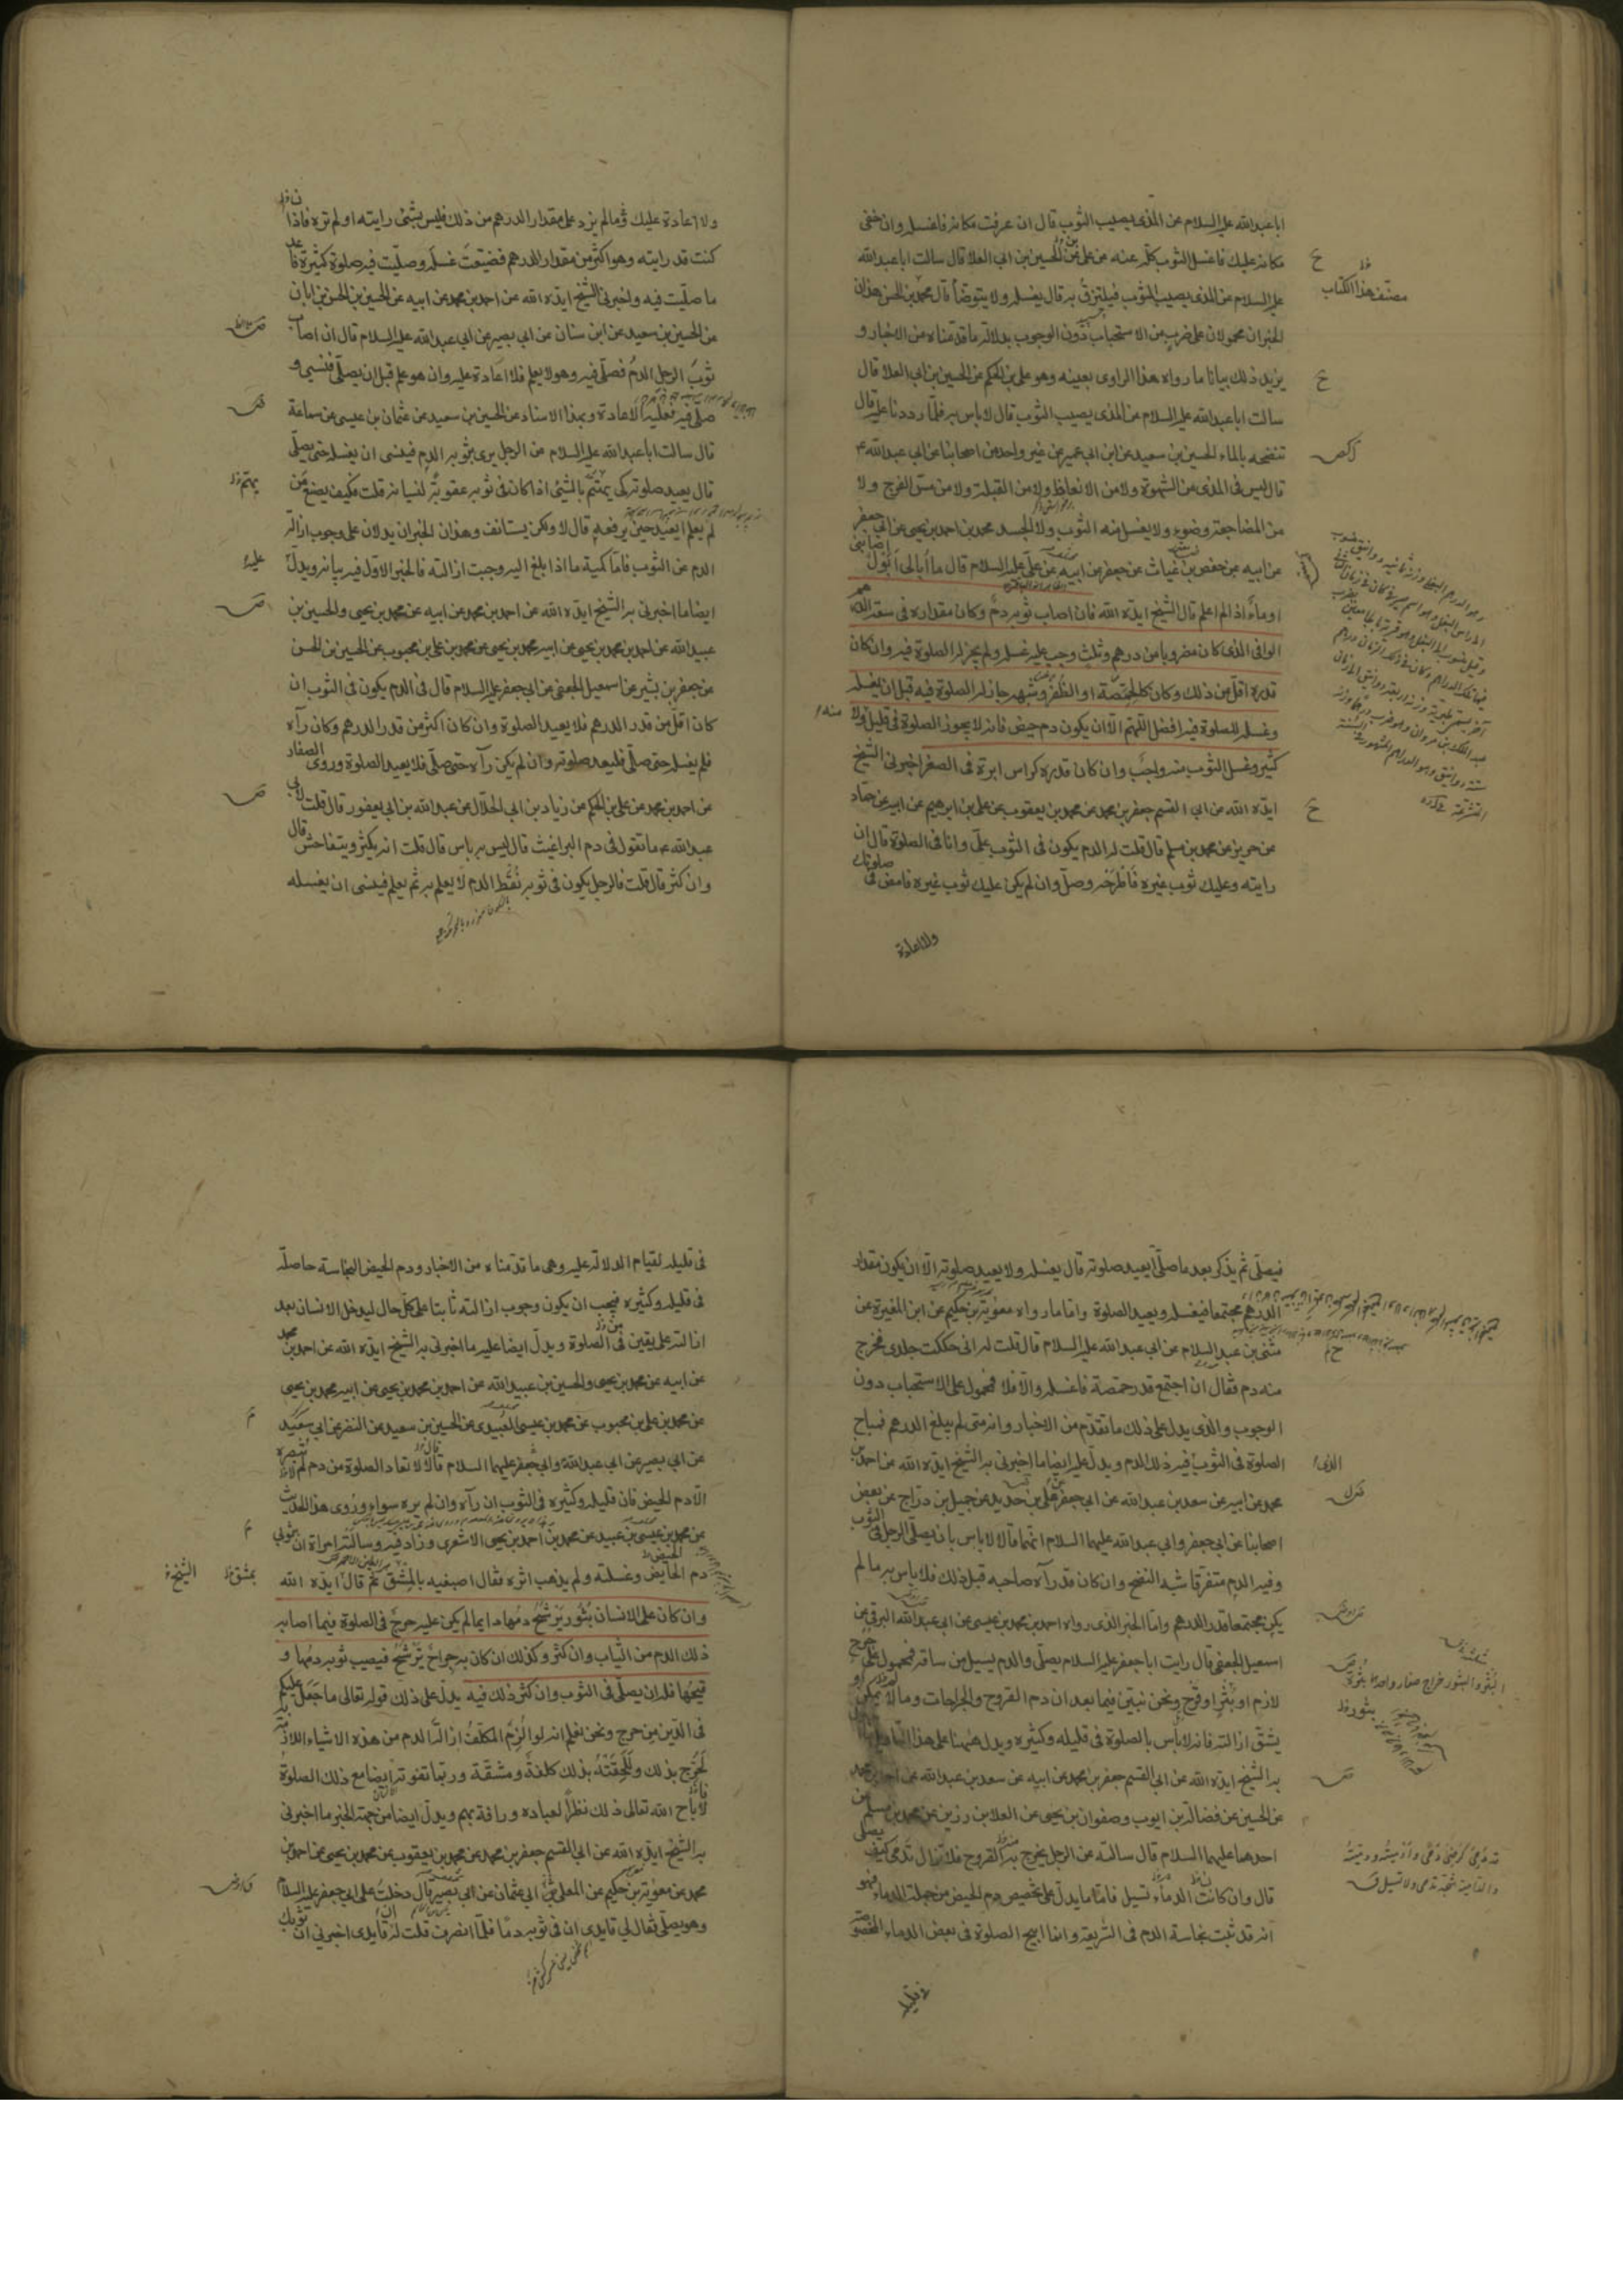 ابا عبد الله عليه السلام عن المذى يصيب الثوب قال ان عرفت مكانه فاغسله وان خفى
مكانه عليك فاغسل الثوب كله عنه عن على بن الحكم عن الحسين بن ابى العلا قال سالت ابا عبد الله
عليه السلام عن المذى يصيب الثوب فيلتزق به قال يغسله ولا يتوضأ قال محمد بن الحسن هذان
الخبران محمولان على ضرب من الاستحباب دون الوجوب بدلالة ما قدمناه من الاخبار و
يزيد ذلك بيانا ما رواه هذا الراوى بعينه وهو على بن الحكم عن الحسين بن ابى العلا قال
سالت ابا عبد الله عليه السلام عن المذى يصيب الثوب قال لا باس به فلما رددنا عليه قال
تنضحه بالماء الحسين بن سعيد عن ابن ابى عمير عن غير واحد من اصحابنا عن ابى عبد الله ع
قال ليس فى المذى من الشهوة ولا من الانعاظ ولا من القبلة ولا من مس الفرج ولا
من المضاجعة وضوء ولا يغسل منه الثوب ولا الجسد محمد بن احمد بن يحيى عن ابى جعفر
عن ابيه عن حفص بن غياث عن جعفر عن ابيه عن على عليه السلام قال ما أبالى أبول اصابنى
او ماء اذا لم اعلم قال الشيخ ايده الله فان اصاب ثوبه دم وكان مقداره فى سعة الدرهم
الوافى الذى كان مضروبا من درهم وثلث وجب عليه غسله ولم يجز له الصلوة فيه وان كان
قدره اقل من ذلك وكان كالحمصة او الظفر وشبهه جاز له الصلوة فيه قبل ان يغسله
وغسله للصلوة فيه افضل اللهم الا ان يكون دم حيض فانه لا يجوز الصلوة فى قليل ولا
كثير وغسل الثوب منه واجب وان كان قدره كراس ابرة فى الصغر اخبرنى الشيخ
ايده الله عن ابى القسم جعفر بن محمد عن محمد بن يعقوب عن على بن ابرهيم عن ابيه عن حماد
عن حريز عن محمد بن مسلم قال قلت له الدم يكون فى الثوب على وانا فى الصلوة قال ان
رايته وعليك ثوب غيره فاطرحه وصل وان لم يكن عليك ثوب غيره فامض فى صلوتك
ولا اعادة
مصنف هذا الكتاب
ولا اعادة عليك وما لم يزد على مقدار الدرهم من ذلك فليس بشئ رايته او لم تره فاذا
كنت قد رايته وهو اكثر من مقدار الدرهم فضيعت غسله وصليت فيه صلوة كثيرة فاعد
ما صليت فيه واخبرنى الشيخ ايده الله عن احمد بن محمد عن ابيه عن الحسين بن الحسن بن ابان
عن الحسين بن سعيد عن ابن سنان عن ابى بصير عن ابى عبد الله عليه السلام قال ان اصاب
ثوب الرجل الدم فصلى فيه وهو لا يعلم فلا اعادة عليه وان هو علم قبل ان يصلى فنسى و
صلى فيه فعليه الاعادة وبهذا الاسناد عن الحسين بن سعيد عن عثمان بن عيسى عن سماعة
قال سالت ابا عبد الله عليه السلام عن الرجل يرى بثوبه الدم فينسى ان يغسله حتى يصلى
قال يعيد صلوته كى يهتم بالشئ اذا كان فى ثوبه عقوبة لنسيانه قلت فكيف يصنع من
لم يعلم ايعيد حين يرفعه قال لا ولكن يستانف وهذان الخبران يدلان على وجوب ازالة
الدم عن الثوب فاما كمية ما اذا بلغ اليه وجبت ازالته فالخبر الاول فيه بيانه ويدل عليه
ايضا ما اخبرنى به الشيخ ايده الله عن احمد بن محمد عن ابيه عن محمد بن يحيى والحسين بن
عبيد الله عن احمد بن محمد بن يحيى عن ابيه محمد بن يحيى عن محمد بن على بن محبوب عن الحسين بن الحسن
عن جعفر بن بشير عن اسمعيل الجعفى عن ابى جعفر عليه السلام قال فى الدم يكون فى الثوب ان
كان اقل من قدر الدرهم فلا يعيد الصلوة وان كان اكثر من قدر الدرهم وكان رآه
فلم يغسله حتى صلى فليعد صلوته وان لم يكن رآه حتى صلى فلا يعيد الصلوة وروى الصفار
عن احمد بن محمد عن على بن الحكم عن زياد بن ابى الحلال عن عبد الله بن ابى يعفور قال قلت لابى
عبد الله ع ما تقول فى دم البراغيث قال ليس به باس قال قلت انه يكثر ويتفاحش قال
وان كثر قال قلت فالرجل يكون فى ثوبه نقط الدم لا يعلم به ثم يعلم فينسى ان يغسله
فيصلى ثم يذكر بعد ما صلى ايعيد صلوته قال يغسله ولا يعيد صلوته الا ان يكون مقدار
الدرهم مجتمعا فيغسله ويعيد الصلوة واما ما رواه معوية بن حكيم عن ابن المغيرة عن
مثنى بن عبد السلام عن ابى عبد الله عليه السلام قال قلت له انى حككت جلدى فخرج
منه دم فقال ان اجتمع قدر حمصة فاغسله والا فلا فمحمول على الاستحباب دون
الوجوب والذى يدل على ذلك ما تقدم من الاخبار وانه متى لم يبلغ الدرهم فمباح
الصلوة فى الثوب فيه ذلك الدم ويدل عليه ايضا ما اخبرنى به الشيخ ايده الله عن احمد بن
محمد عن ابيه عن سعد بن عبد الله عن ابى جعفر عن على بن حديد عن جميل بن دراج عن بعض
اصحابنا عن ابى جعفر وابى عبد الله عليهما السلام انهما قالا لا باس بان يصلى الرجل فى الثوب
وفيه الدم متفرقا شبه النضح وان كان قد رآه صاحبه قبل ذلك فلا باس به ما لم
يكن مجتمعا قدر الدرهم واما الخبر الذى رواه احمد بن محمد بن عيسى عن ابى عبد الله البرقى عن
اسمعيل الجعفى قال رايت ابا جعفر عليه السلام يصلى والدم يسيل من ساقه فمحمول على جرح
لازم او بثر او قرح ونحن نبين فيما بعد ان دم القروح والجراحات وما لا يمكن
يشق ازالته فانه لا باس بالصلوة فى قليله وكثيره ويدل ههنا على هذا التاويل ما
به الشيخ ايده الله عن ابى القسم جعفر بن محمد عن ابيه عن سعد بن عبد الله عن احمد بن محمد
عن الحسين عن فضالة بن ايوب وصفوان بن يحيى عن العلا بن رزين عن محمد بن مسلم عن
احدهما عليهما السلام قال سالته عن الرجل يخرج به القروح فلا تزال تدمى كيف يصلى
قال وان كانت الدماء تسيل فاما ما يدل على تخصيص دم الحيض من جملة الدماء فهو
انه قد ثبت نجاسة الدم فى الشريعة وانما ابيح الصلوة فى بعض الدماء المخصوصة
فى قليله
فى قليله لقيام الدلالة عليه وهى ما قدمناه من الاخبار ودم الحيض النجاسة حاصلة
فى قليله وكثيره فيجب ان يكون وجوب ازالته ثابتا على كل حال ليدخل الانسان بعد
ازالته على يقين فى الصلوة ويدل ايضا عليه ما اخبرنى به الشيخ ايده الله عن احمد بن محمد
عن ابيه عن محمد بن يحيى والحسين بن عبيد الله عن احمد بن محمد بن يحيى عن ابيه محمد بن يحيى
عن محمد بن على بن محبوب عن محمد بن عيسى العبيدى عن الحسين بن سعيد عن النضر عن ابى سعيد
عن ابى بصير عن ابى عبد الله وابى جعفر عليهما السلام قالا لا تعاد الصلوة من دم لم تبصره
الا دم الحيض فان قليله وكثيره فى الثوب ان رآه وان لم يره سواء وروى هذا الحديث
عن محمد بن عيسى بن عبيد عن محمد بن احمد بن يحيى الاشعرى وزاد فيه وسالته امراة ان بثوبى
دم الحايض وغسلته ولم يذهب اثره فقال اصبغيه بالمشق ثم قال ايده الله
وان كان على الانسان بثور يرشح دمها دايما لم يكن عليه حرج فى الصلوة فيما اصابه
ذلك الدم من الثياب وان كثر وكذلك ان كان به جراح يرشح فيصيب ثوبه دمها و
قيحها فله ان يصلى فى الثوب وان كثر ذلك فيه يدل على ذلك قوله تعالى ما جعل عليكم
فى الدين من حرج ونحن نعلم انه لو الزم المكلف ازالة الدم من هذه الاشياء اللازمة
لحرج بذلك وللحقته بذلك كلفة ومشقة وربما تفوته ايضا مع ذلك الصلوة
فاباح الله تعالى ذلك نظرا لعباده ورافة بهم ويدل ايضا من جهة الخبر ما اخبرنى
به الشيخ ايده الله عن ابى القسم جعفر بن محمد عن محمد بن يعقوب عن محمد بن يحيى عن احمد بن
محمد عن معوية بن حكيم عن المعلى ابى عثمان عن ابى بصير قال دخلت على ابى جعفر عليه السلام
وهو يصلى فقال لى قايدى ان فى ثوبه دما فلما انصرف قلت له ان قايدى اخبرنى ان بثوبك